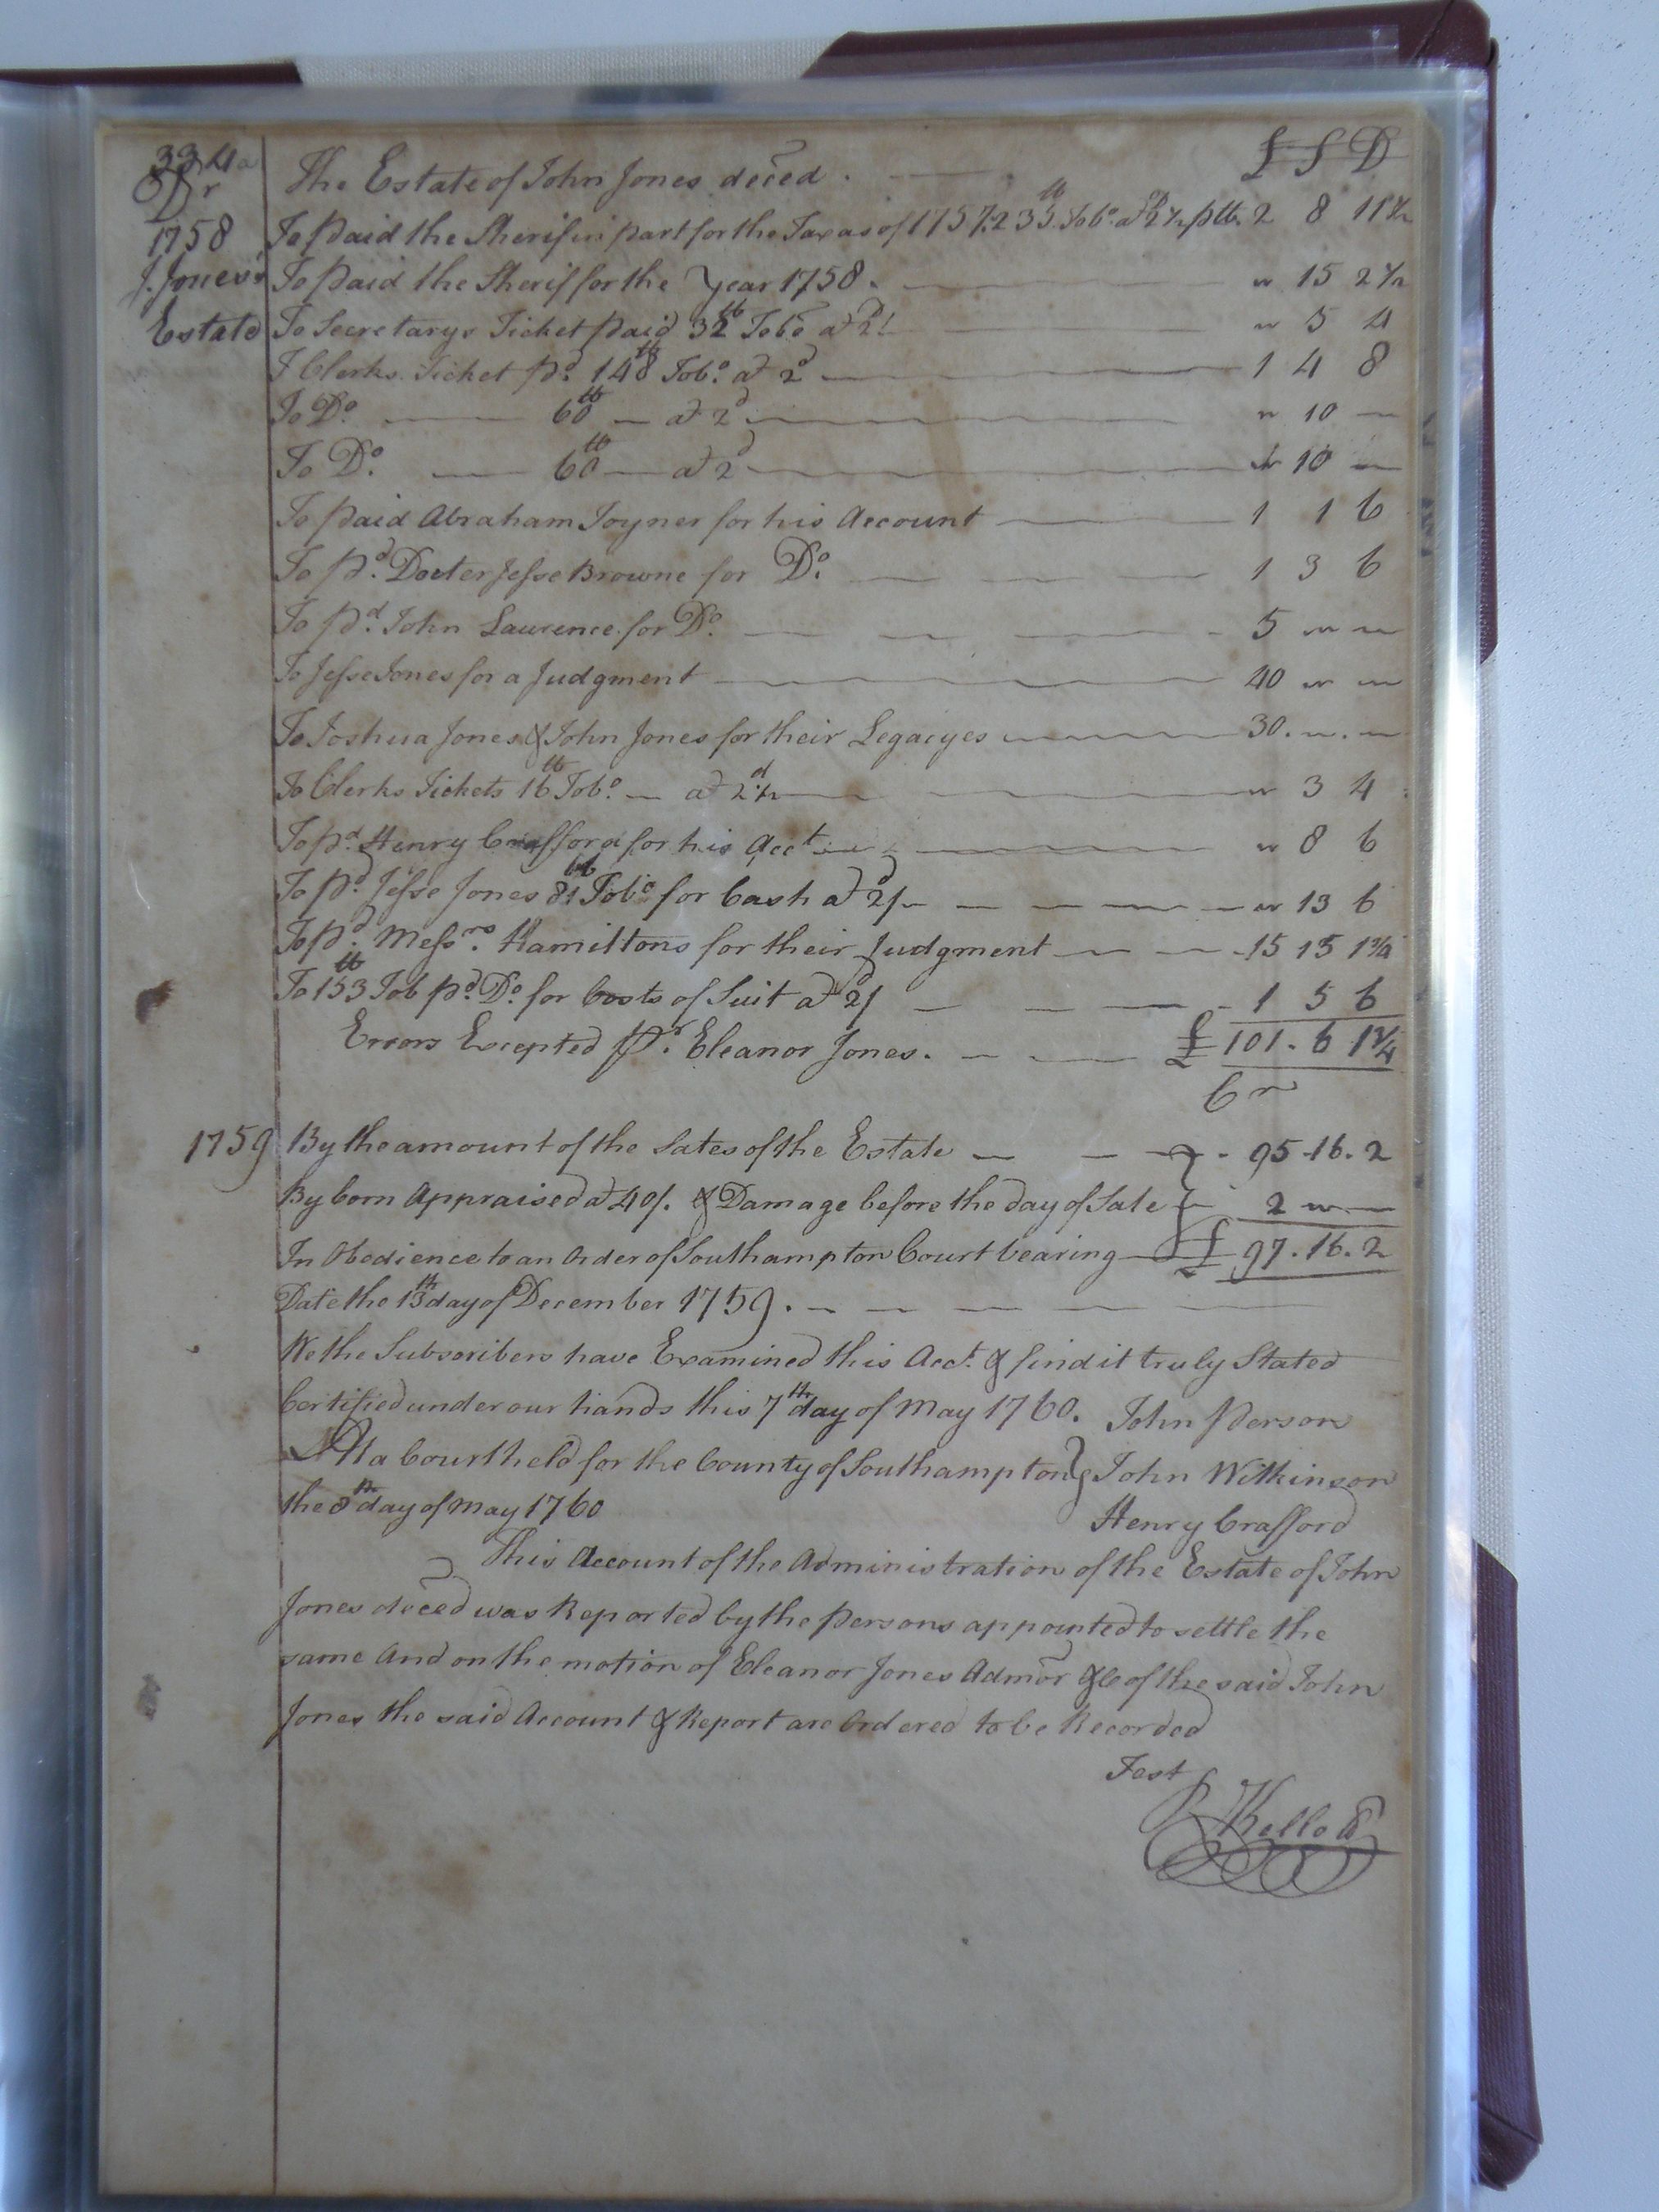 334
Dr The Estate of John Jones deced. £ S D
1758 To paid the Sherif in part for the Taxas of 1757. 235 lb Tobo. at 2½ p lb. 2 8 11½
J. Jones's To paid the Sherif for the Year 1758. " 15 2½
Estate To Secretarys Ticket paid 32 lb Tobo at 2d " 5 4
T Clerks Ticket pd. 148 lb Tobo. at 2d 1 4 8
To Do. 60 lb at 2d " 10 "
To Do. 60 lb at 2d " 10 "
To paid Abraham Joyner for his Account 1 1 6
To pd. Docter Jesse Browne for Do. 1 3 6
To pd. John Lawrence for Do. 5 " "
To Jesse Jones for a Judgment 40 " "
To Joshua Jones & John Jones for their Legacyes 30. ". "
To Clerks Tickets 16 lb Tobo. at 2d½ " 3 4
To pd. Henry Crafford for his Acct " 8 6
To pd. Jesse Jones 81 lb Tobo for Cash at 2d " 13 6
To pd. Messrs. Hamiltons for their Judgment 15 15 1¾
To 153 lb Tob pd. Do. for Costs of Suit at 2d 1 5 6
Errors Excepted pr. Eleanor Jones. £ 101. 6 1¼
Cr
1759 By the amount of the Sales of the Estate 95.16.2
By Corn Appraised at 40/. & Damage before the day of Sale 2 " "
In Obedience to an Order of Southampton Court bearing £ 97.16.2
Date the 13th day of December 1759.
We the Subscribers have Examined this Acct. & find it truly Stated
Certified under our hands this 7th day of May 1760. John Person
At a Court held for the County of Southampton } John Wilkinson
the 8th day of May 1760 Henry Crafford
This Account of the Administration of the Estate of John
Jones deced was Reported by the persons appointed to settle the
same And on the motion of Eleanor Jones Admor &c of the said John
Jones the said Account & Report are Ordered to be Recorded
Test
R Kello